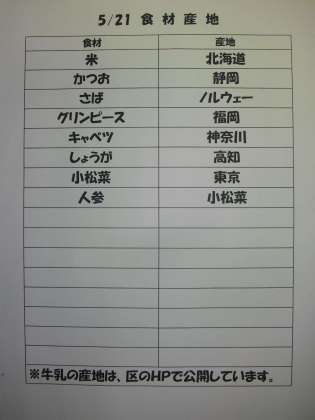 5/21 食材産地
食材 産地
米 北海道
かつお 静岡
さば ノルウェー
グリンピース 福岡
キャベツ 神奈川
しょうが 高知
小松菜 東京
人参 小松菜
※牛乳の産地は、区のHPで公開しています。